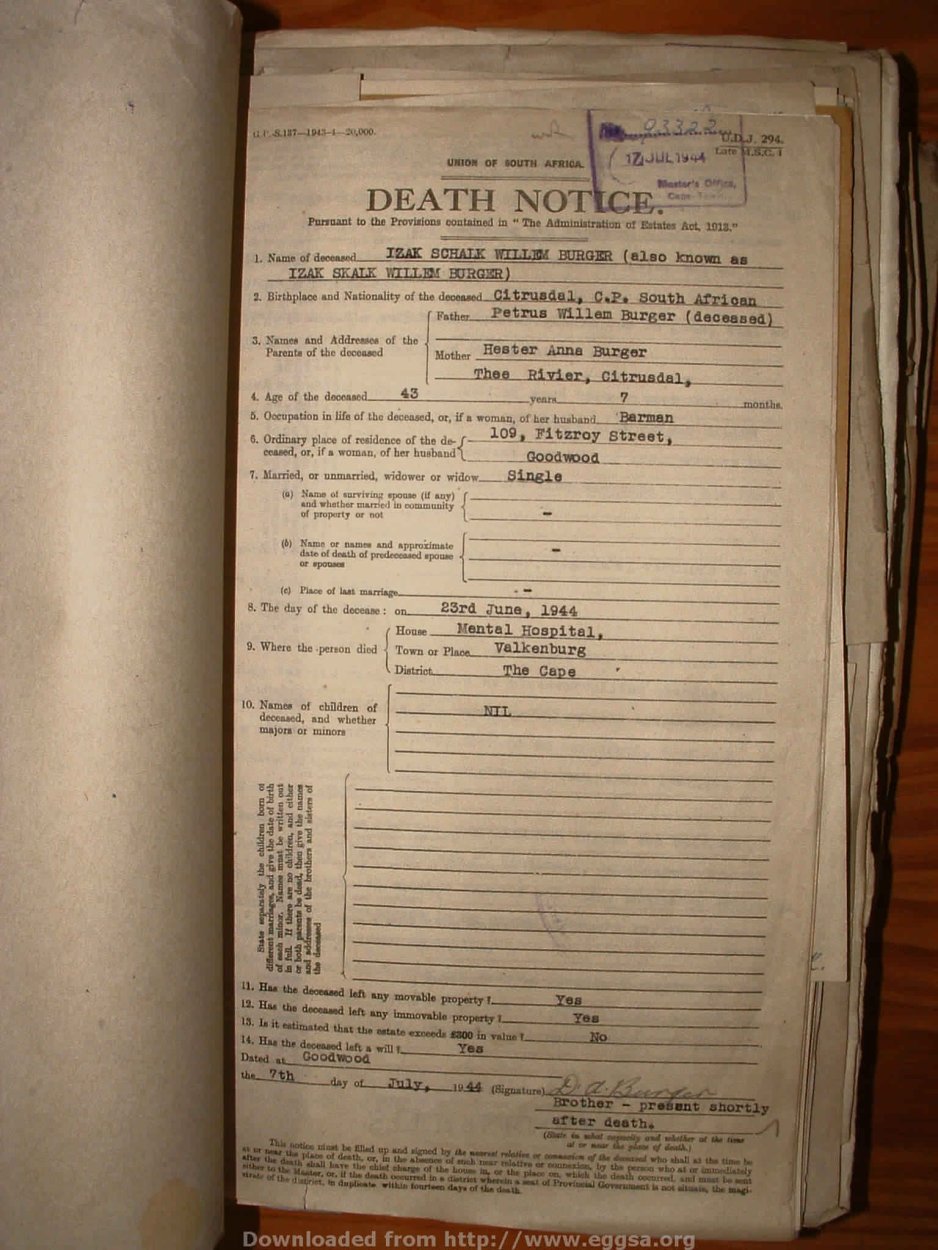 G.P.-S.187—1943-4—20,000.
93322
U.D.J. 294.
Late M.S.C. 1
17 JUL 1944
Master's Office,
Cape
UNION OF SOUTH AFRICA.
DEATH NOTICE.
Pursuant to the Provisions contained in "The Administration of Estates Act, 1913."
1. Name of deceased IZAK SCHALK WILLEM BURGER (also known as
IZAK SKALK WILLEM BURGER)
2. Birthplace and Nationality of the deceased Citrusdal, C.P. South African
Father Petrus Willem Burger (deceased)
3. Names and Addresses of the
Parents of the deceased
Mother Hester Anna Burger
Thee Rivier, Citrusdal,
4. Age of the deceased 43 years 7 months.
5. Occupation in life of the deceased, or, if a woman, of her husband Barman
6. Ordinary place of residence of the de- 109, Fitzroy Street,
ceased, or, if a woman, of her husband Goodwood
7. Married, or unmarried, widower or widow Single
(a) Name of surviving spouse (if any)
and whether married in community
of property or not -
(b) Name or names and approximate
date of death of predeceased spouse -
or spouses
(c) Place of last marriage -
8. The day of the decease: on 23rd June, 1944
House Mental Hospital,
9. Where the person died Town or Place Valkenburg
District The Cape
10. Names of children of NIL
deceased, and whether
majors or minors
State separately the children born of
different marriages, and give the date of birth
of each minor. Names must be written out
in full. If there are no children, and either
or both parents be dead, then give the names
and addresses of the brothers and sisters of
the deceased
11. Has the deceased left any movable property? Yes
12. Has the deceased left any immovable property? Yes
13. Is it estimated that the estate exceeds £300 in value? No
14. Has the deceased left a will? Yes
Dated at Goodwood
the 7th day of July, 1944 (Signature) D. A. Burger
Brother - present shortly
after death.
(State in what capacity and whether at the time
at or near the place of death.)
This notice must be filled up and signed by the nearest relative or connexion of the deceased who shall at the time be
at or near the place of death, or, in the absence of such near relative or connexion, by the person who at or immediately
after the death shall have the chief charge of the house in, or the place on, which the death occurred, and must be sent
either to the Master, or, if the death occurred in a district wherein a seat of Provincial Government is not situate, the magi-
strate of the district, in duplicate within fourteen days of the death.
Downloaded from http://www.eggsa.org